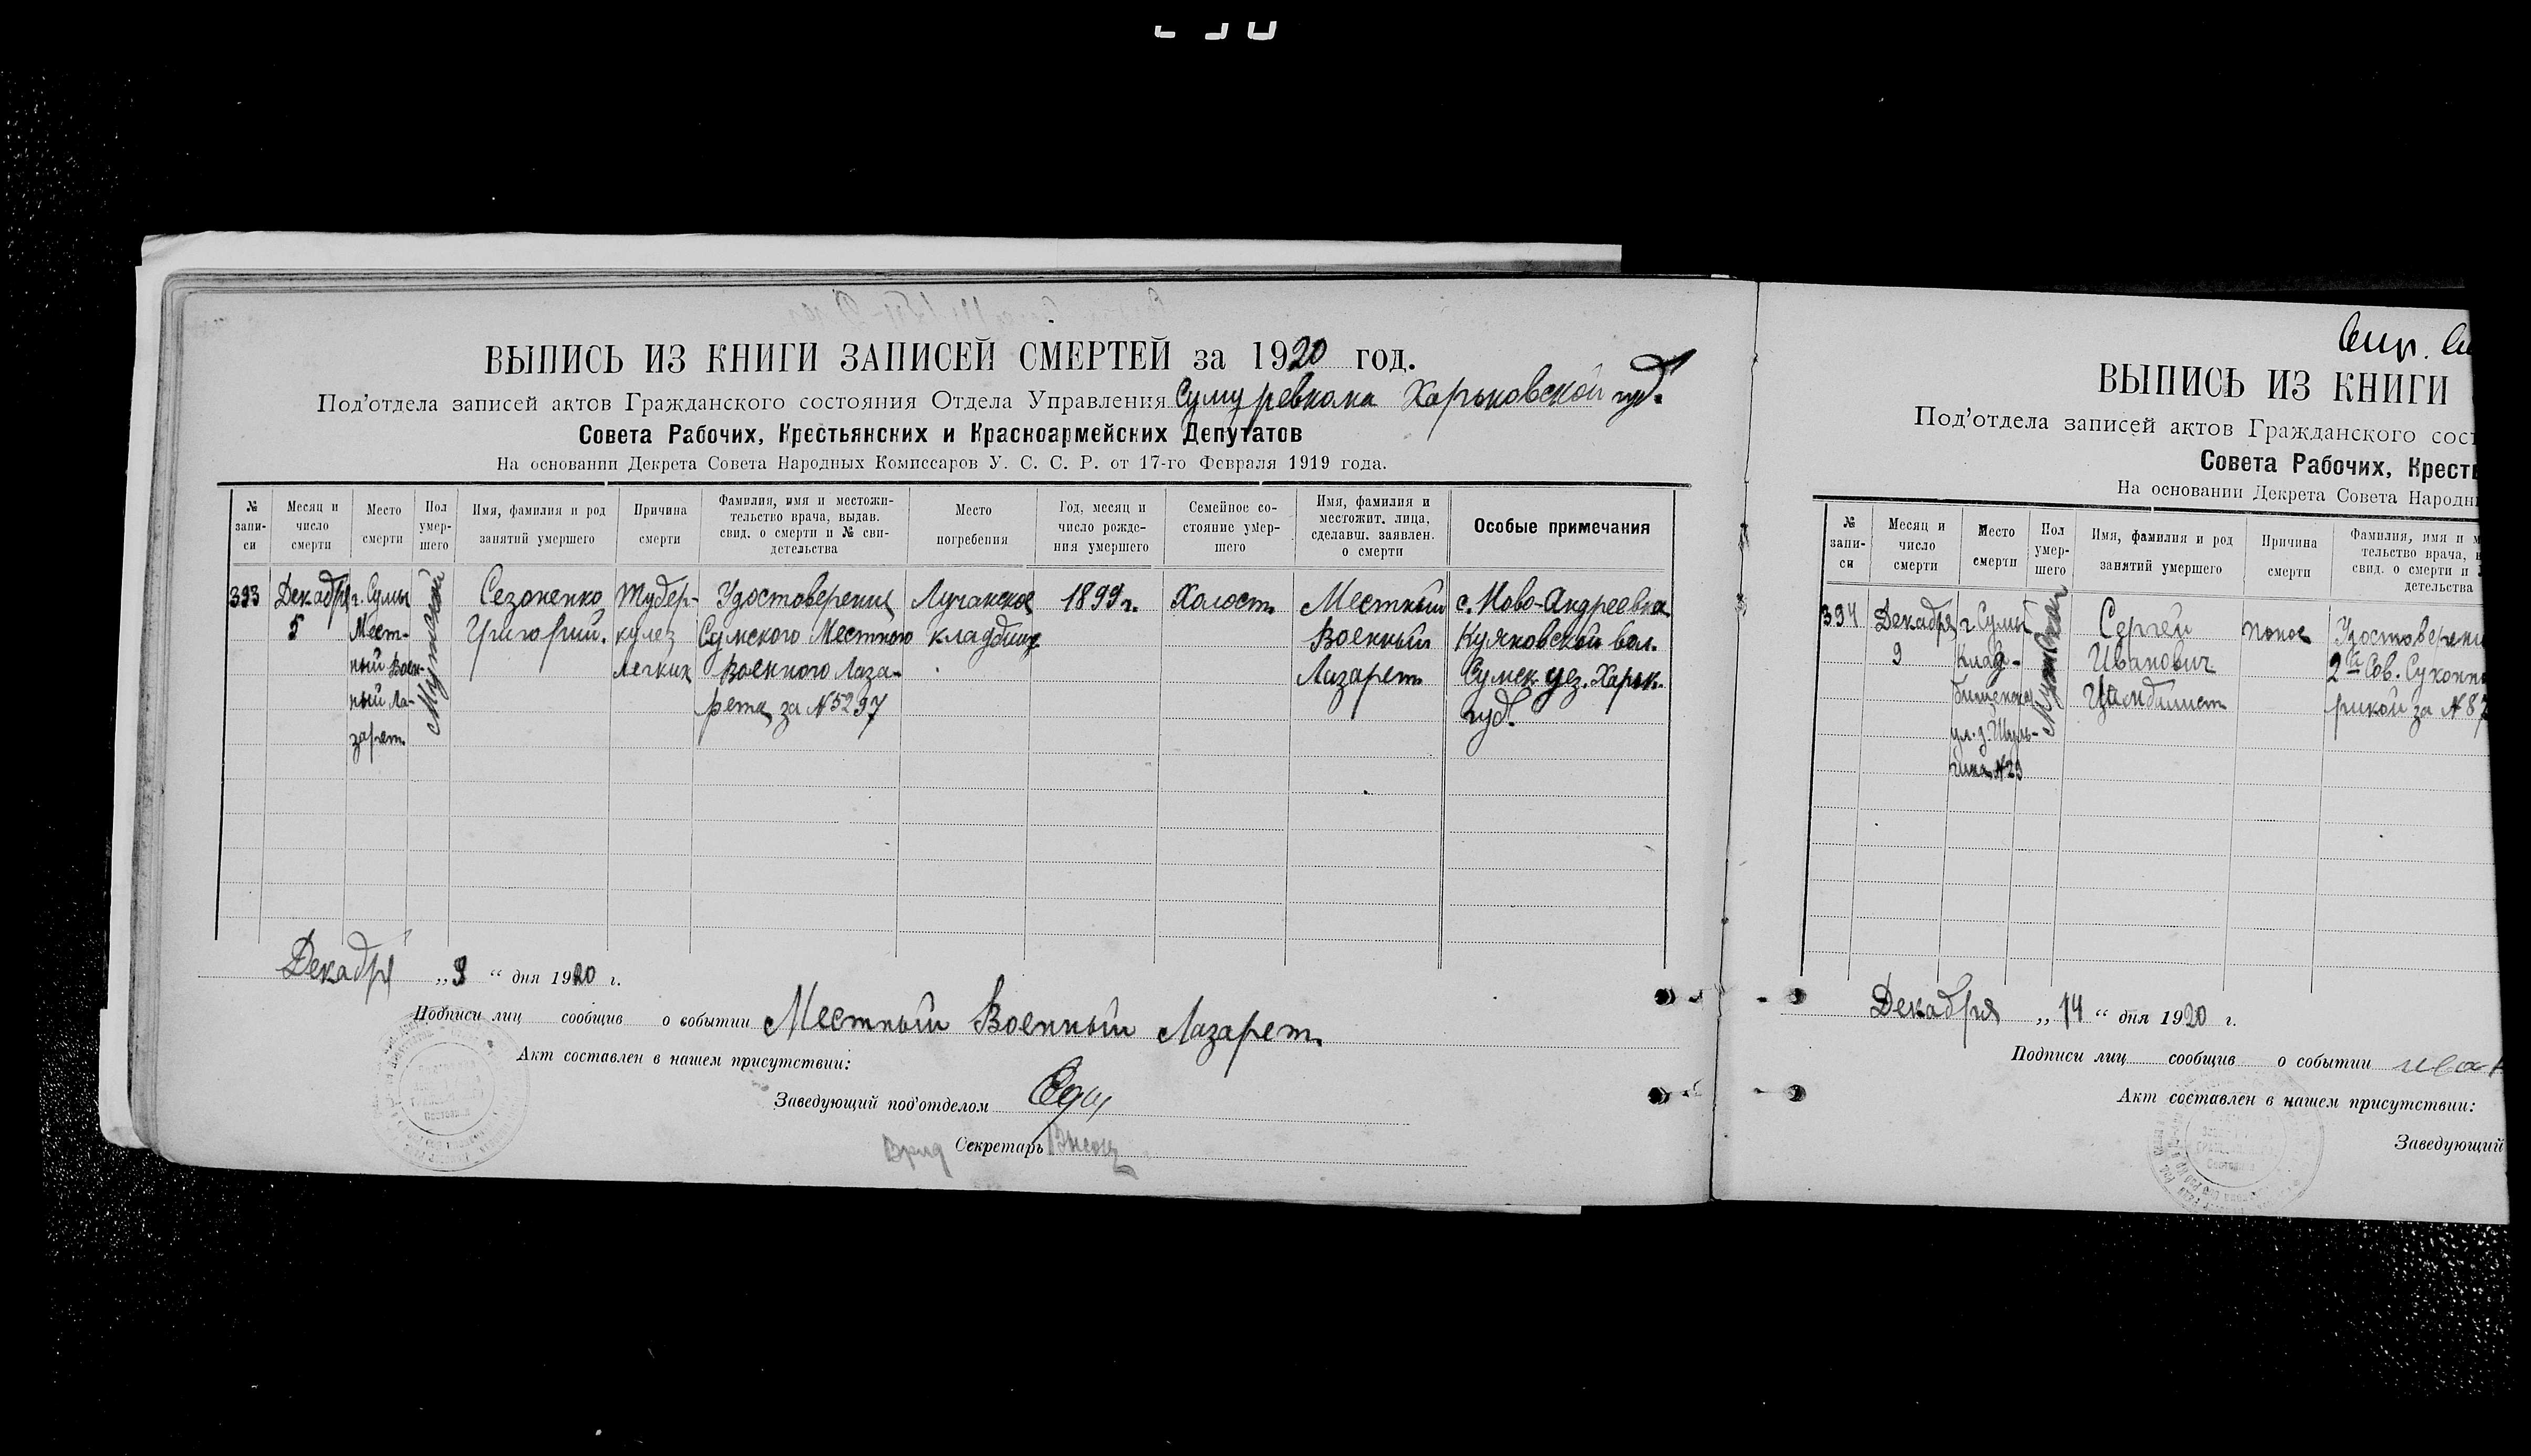 ВЫПИСЬ ИЗ КНИГИ ЗАПИСЕЙ СМЕРТЕЙ за 1920 год.
Под'отдела записей актов Гражданского состояния Отдела Управления Сумуревкома Харьковской губ.
Совета Рабочих, Крестьянских и Красноармейских Депутатов
На основании Декрета Совета Народных Комиссаров У. С. С. Р. от 17-го Февраля 1919 года.
№ запи-
си
Месяц и
число
смерти
Место
смерти
Пол
умер-
шего
Имя, фамилия и род
занятий умершего
Причина
смерти
Фамилия, имя и местожи-
тельство врача, выдав.
свид. о смерти и № сви-
детельства
Место
погребения
Год, месяц и
число рожде-
ния умершего
Семейное со-
стояние умер-
шего
Имя, фамилия и
местожит. лица,
сделавш. заявлен.
о смерти
Особые примечания
393
Декабря
5
г. Сумы
Мест-
ный Воен-
ный Ла-
зарет
Мужской
Сезоненко
Григорий.
Тубер-
кулез
легких
Удостоверение
Сумского Местного
Военного Лаза-
рета за №5297
Лучанское
кладбище
1899 г.
Холост
Местный
Военный
Лазарет
с. Ново-Андреевка
Куяновской вол.
Сумск уез. Харьк.
губ.
Декабря „9“ дня 1920 г.
Подписи лиц сообщив о событии Местный Военный Лазарет
Акт составлен в нашем присутствии:
Заведующий под'отделом
Врид Секретарь
ВЫПИСЬ ИЗ КНИГИ
Под'отдела записей актов Гражданского сост
Совета Рабочих, Кресть
На основании Декрета Совета Народн
№
запи-
си
Месяц и
число
смерти
Место
смерти
Пол
умер-
шего
Имя, фамилия и род
занятий умершего
Причина
смерти
Фамилия, имя и м
тельство врача,
свид. о смерти и
детельства
394
Декабря
9
г Сумы
Клад-
бищенская
ул. д. Шуль-
гина №23
Мужской
Сергей
Иванович
Цимбалист
понос
Удостоверени
2й Сов. Суконно
рикой за №87
Декабря „14“ дня 1920 г.
Подписи лиц сообщив о событии
Акт составлен в нашем присутствии:
Заведующий